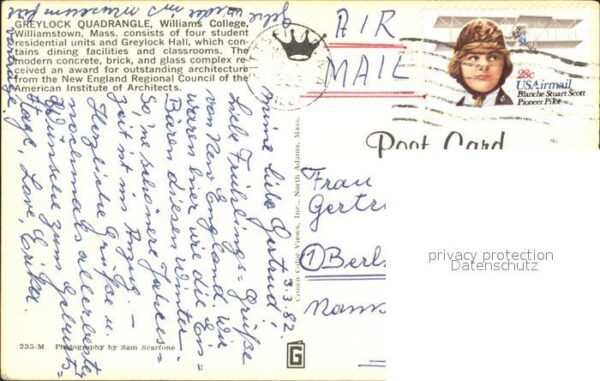 GREYLOCK QUADRANGLE, Williams College,
Williamstown, Mass. consists of four student
residential units and Greylock Hall, which con-
tains dining facilities and classrooms. The
modern concrete, brick, and glass complex re-
ceived an award for outstanding architecture
from the New England Regional Council of the
American Institute of Architects.
AIR
MAIL
28c
USAirmail
Blanche Stuart Scott
Pioneer Pilot
Post Card
3.3.82.
Meine liebe Gertrud!
Liebe Frühlings-Grüße
von New England. Wir
waren hier wie die Eis=
Bären diesen Winter.
So, ne schönere Jahres=
zeit ist im Anzug. –
Herzliche Grüße u.
nochmals allerbeste
Wünsche zum Geburts=
tage, Love, Erika.
Frau
Gertr
1 Berl
Crown Color Views, Inc., North Adams, Mass.
G
235-M Photography by Sam Scarfone
privacy protection
Datenschutz